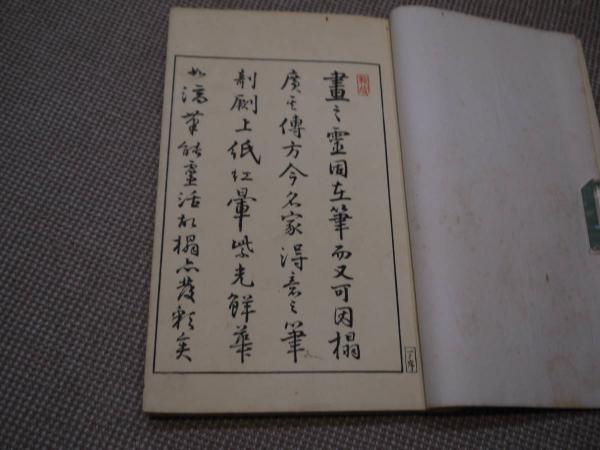 畫之靈固在筆而又可因搨
廣其傳方今名家得意之筆
剞劂上紙紅暈紫光鮮華
如滴筆能靈活故搨亦發彩矣
序